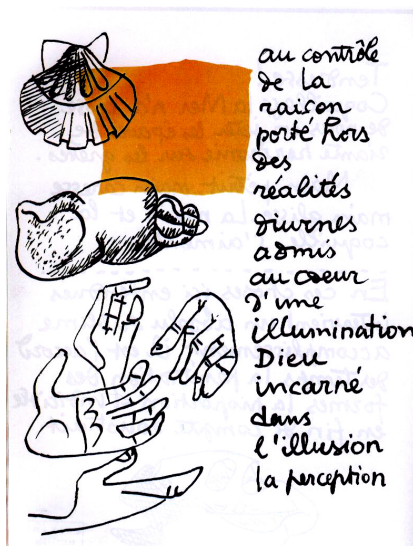 au contrôle
de la
raison
porté hors
des
réalités
diurnes
admis
au cœur
d'une
illumination
Dieu
incarné
dans
l'illusion
la perception